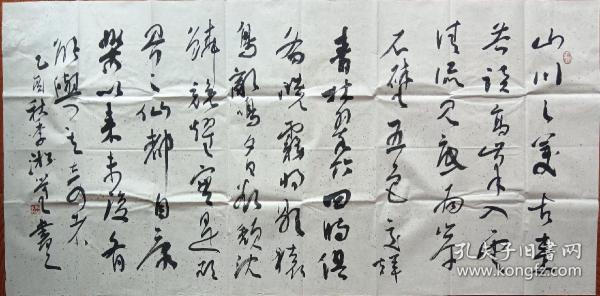 山川之美古来
共談高峯入雲
清流見底兩岸
石壁五色交輝
青林翠竹四時俱
備曉霧將歇猿
鳥亂鳴夕日欲頹沈
鱗競躍實是欲
界之仙都自康
樂以来未復有
能與其奇者
乙酉秋李書
孔夫子旧书网
www.kongfz.com